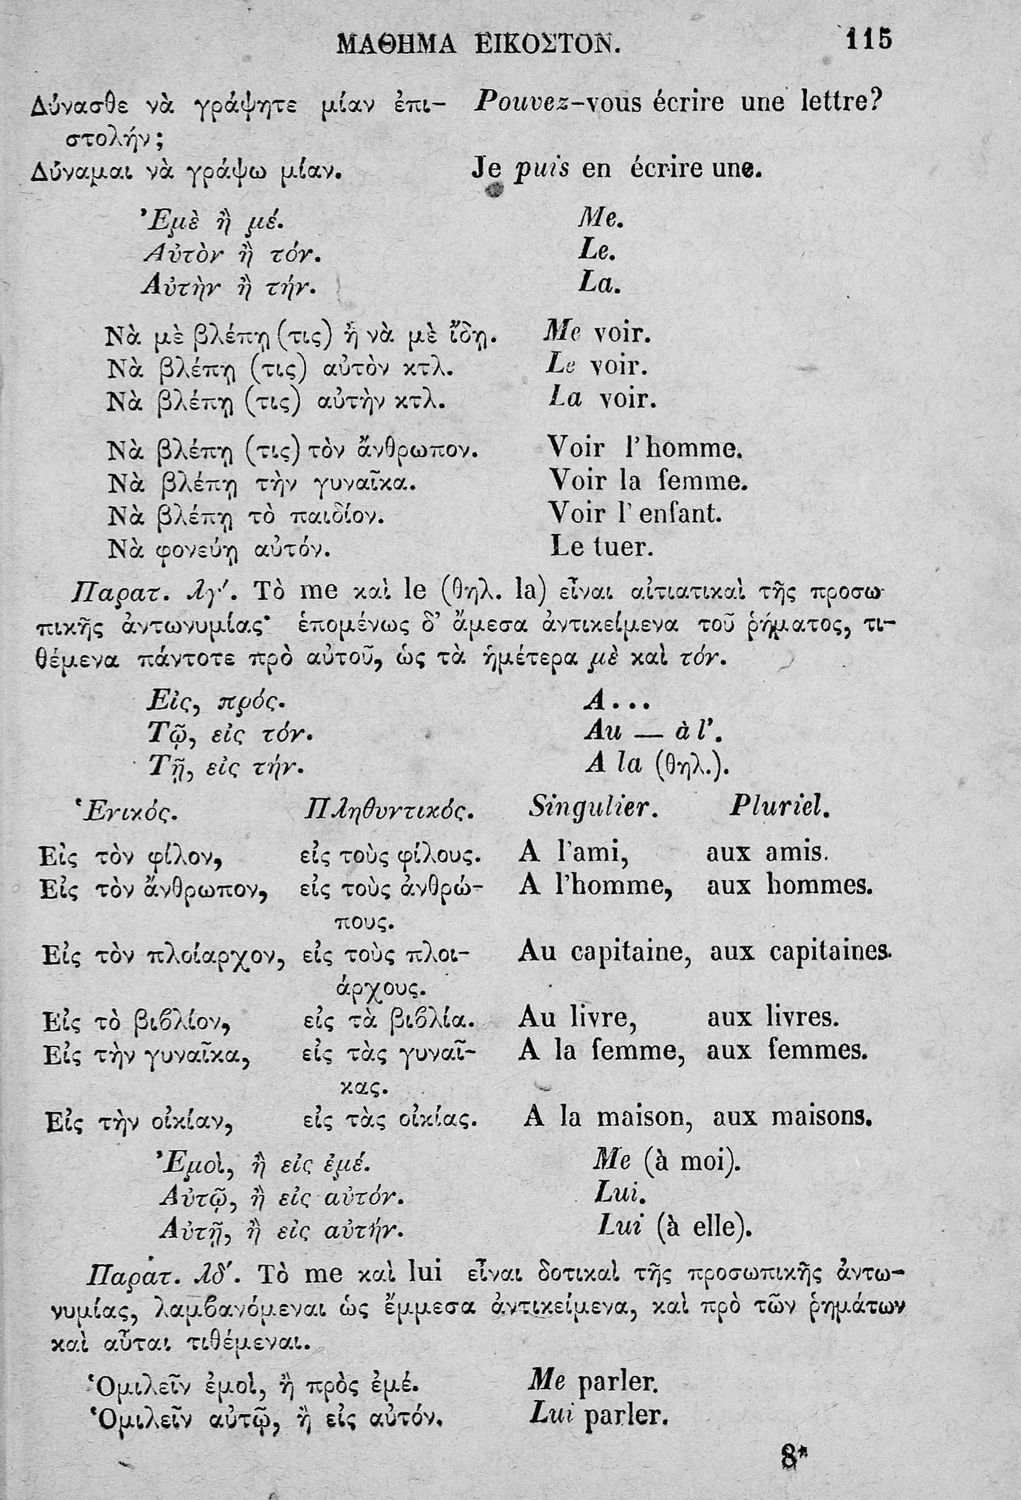 ΜΑΘΗΜΑ ΕΙΚΟΣΤΟΝ. 115
Δύνασθε νὰ γράψητε μίαν ἐπι- Pouvez-vous écrire une lettre?
στολήν;
Δύναμαι νὰ γράψω μίαν. Je puis en écrire une.
Ἐμὲ ἢ μέ. Me.
Αὐτὸν ἢ τόν. Le.
Αὐτὴν ἢ τήν. La.
Νὰ μὲ βλέπῃ (τις) ἢ νὰ μὲ ἴδῃ. Me voir.
Νὰ βλέπῃ (τις) αὐτὸν κτλ. Le voir.
Νὰ βλέπῃ (τις) αὐτὴν κτλ. La voir.
Νὰ βλέπῃ (τις) τὸν ἄνθρωπον. Voir l'homme.
Νὰ βλέπῃ τὴν γυναῖκα. Voir la femme.
Νὰ βλέπῃ τὸ παιδίον. Voir l'enfant.
Νὰ φονεύῃ αὐτόν. Le tuer.
Παρατ. λγ'. Τὸ me καὶ le (θηλ. la) εἶναι αἰτιατικαὶ τῆς προσω-
πικῆς ἀντωνυμίας· ἑπομένως δ' ἄμεσα ἀντικείμενα τοῦ ῥήματος, τι-
θέμενα πάντοτε πρὸ αὐτοῦ, ὡς τὰ ἡμέτερα μὲ καὶ τόν.
Εἰς, πρός. A...
Τῷ, εἰς τόν. Au — à l'.
Τῇ, εἰς τήν. A la (θηλ.).
Ἑνικός. Πληθυντικός. Singulier. Pluriel.
Εἰς τὸν φίλον, εἰς τοὺς φίλους. A l'ami, aux amis.
Εἰς τὸν ἄνθρωπον, εἰς τοὺς ἀνθρώ- A l'homme, aux hommes.
πους.
Εἰς τὸν πλοίαρχον, εἰς τοὺς πλοι- Au capitaine, aux capitaines.
άρχους.
Εἰς τὸ βιβλίον, εἰς τὰ βιβλία. Au livre, aux livres.
Εἰς τὴν γυναῖκα, εἰς τὰς γυναῖ- A la femme, aux femmes.
κας.
Εἰς τὴν οἰκίαν, εἰς τὰς οἰκίας. A la maison, aux maisons.
Ἐμοὶ, ἢ εἰς ἐμέ. Me (à moi).
Αὐτῷ, ἢ εἰς αὐτόν. Lui.
Αὐτῇ, ἢ εἰς αὐτήν. Lui (à elle).
Παρατ. λδ'. Τὸ me καὶ lui εἶναι δοτικαὶ τῆς προσωπικῆς ἀντω-
νυμίας, λαμβανόμεναι ὡς ἔμμεσα ἀντικείμενα, καὶ πρὸ τῶν ῥημάτων
καὶ αὗται τιθέμεναι.
Ὁμιλεῖν ἐμοὶ, ἢ πρὸς ἐμέ. Me parler.
Ὁμιλεῖν αὐτῷ, ἢ εἰς αὐτόν. Lui parler.
8*